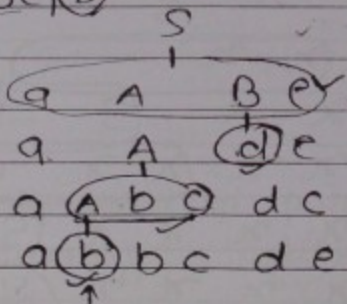 S
a A B e
a A d e
a A b c d c
a b b c d e